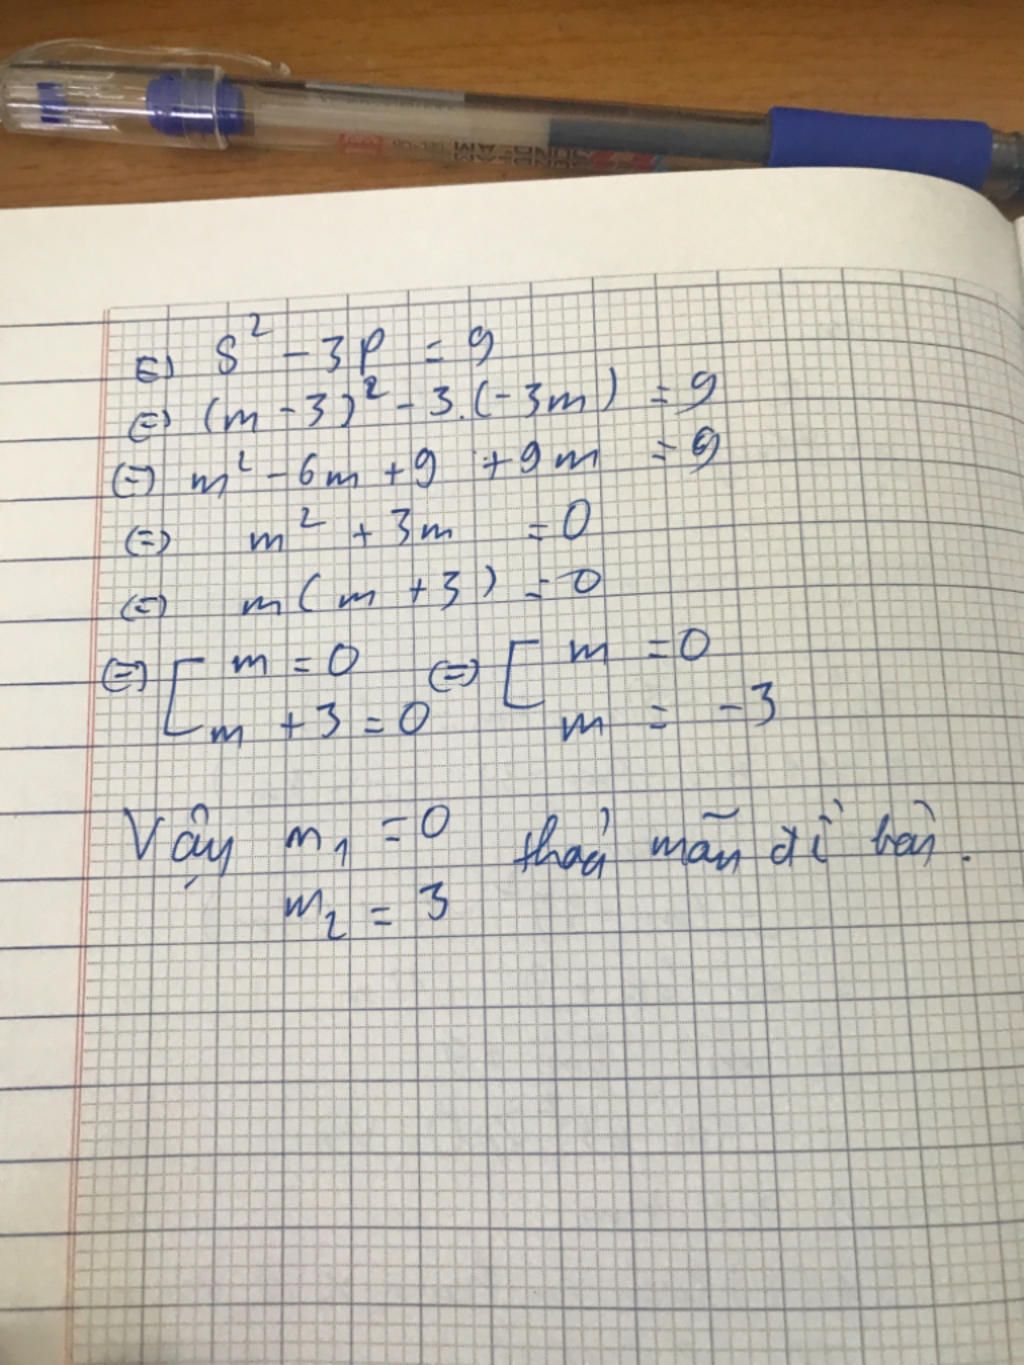 (=) S² - 3P = 9
(=) (m - 3)² - 3.(-3m) = 9
(=) m² - 6m + 9 + 9m = 9
(=) m² + 3m = 0
(=) m(m + 3) = 0
(=) [ m = 0 (=) [ m = 0
m + 3 = 0 m = -3
Vậy m₁ = 0 thoả mãn đề bài.
m₂ = 3